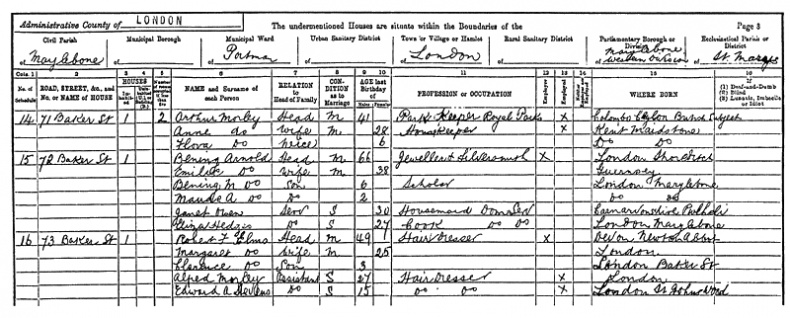 Administrative County of LONDON The undermentioned Houses are situate within the Boundaries of the Page 3
Civil Parish Municipal Borough Municipal Ward Urban Sanitary District Town or Village or Hamlet Rural Sanitary District Parliamentary Borough or Division Ecclesiastical Parish or District
of Marylebone of of Portman of of London of of Marylebone Western Division of St. Marys
Cols. 1 2 3 4 5 6 7 8 9 10 11 12 13 14 15 16
No. of Schedule ROAD, STREET, &c., and No. or NAME of HOUSE HOUSES NAME and Surname of each Person RELATION to Head of Family CONDITION as to Marriage AGE last Birthday of PROFESSION or OCCUPATION Employer WHERE BORN If (1) Deaf-and-Dumb (2) Blind (3) Lunatic, Imbecile or Idiot
Males Females
14 71 Baker St 1 2 Arthur Morley Head M 41 Park Keeper Royal Parks X Colombo Ceylon British Subject
Anne do Wife M 28 Housekeeper X Kent Maidstone
Flora Do Niece 6 Do Do
15 72 Baker St 1 Bening Arnold Head M 66 Jeweller & Silversmith X London Shoreditch
Emilie Do Wife M 38 Guernsey
Bening M Do Son 6 Scholar London Marylebone
Maude A Do D 2 Do Do
Janet Owen Serv S 20 Housemaid Dom Ser Caernarvonshire Pwllheli
Eliza Hedges Do S 27 Cook Do Do London Marylebone
16 73 Baker St 1 Robert F Elmo Head M 49 Hair Dresser X Devon Newton Abbot
Margaret Do Wife M 25 London
Clarence Do Son 3 London Baker St
Alfred Morley Assistant S 27 Hair Dresser X London
Edward A Stevens Do S 15 Do Do X London St Johns Wood